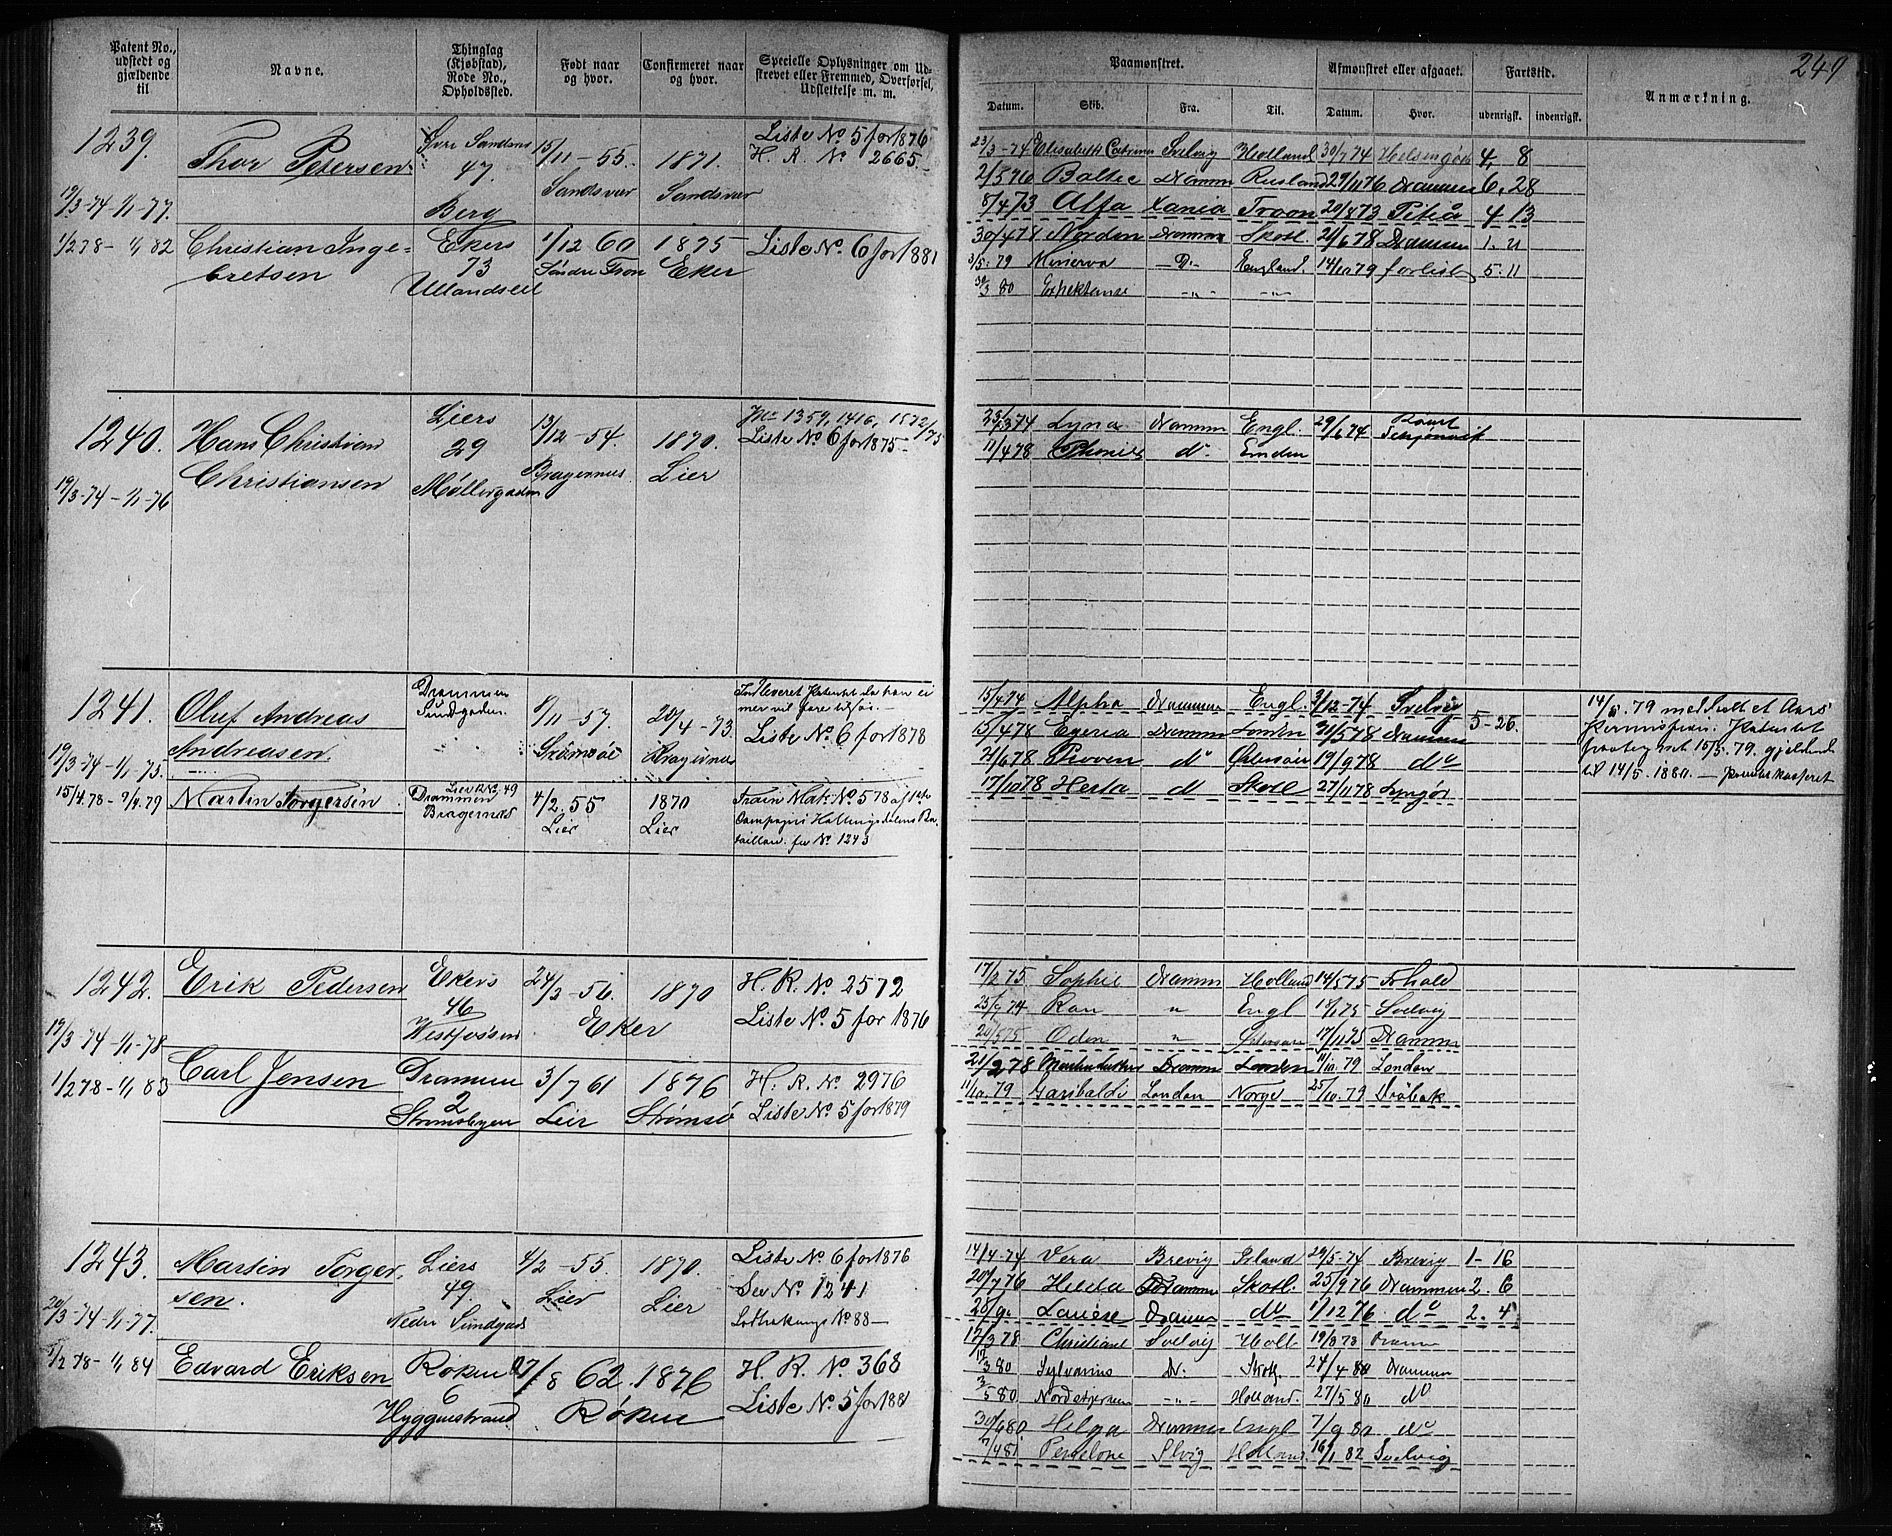 249
Patent No., udstedt og gjældende til
Navne.
Thinglag (Kjøbstad), Rode No., Opholdssted.
Født naar og hvor.
Confirmeret naar og hvor.
Specielle Oplysninger om Udstrevet eller Fremmed, Overførsel, Udslettelse m. m.
Paamønstret.
Datum. Skib. Fra. Til.
Afmønstret eller afgaaet.
Datum. Hvor.
Fartstid.
udenrigsk. indenrigsk.
Anmærkning.
1239.
19/3-74-1/1-77.
Thor Petersen
47.
Berg
15/11-55.
Sandsvær
1871.
Sandsvær
Liste No 5 for 1876
H. R. No 2665.
1/2 78-1/1 82
Christian Inge-
bretsen
Ekers
73
1/12 60
1875
Eker
Liste No 6 for 1881
23/3-74 Elisabeth Svelvig Holland 30/7 74 4, 8
Baltic Dramm Rusland 29/11 76 Drammen 6. 28
8/4 73 Alfa Xania Troon 20/8 73 Piteå 4 13
30/4 78 Norden Dramm Skotl. 21/6 78 Drammen 1. 21
3/5. 79 Minerva D- England. 14/10 79 forlist 5. 11
30/3 80 -"- -"-
1240.
19/3-74-1/1-76
Hans Christian
Christiansen
Liers
29
Møllergaden
13/12-54.
Bragernæs
1870.
Lier
No 1359, 1416, 1572/75
Liste No 6 for 1875-
23/3 74 Lyna Dramm Engl. 29/6 74
11/4 78 do Emden
1241.
19/3-74-1/1-75.
Oluf Andreas
Andreasen.
Drammen
Sundgaden.
Strømsøe
20/4-73.
Bragernæs
Indleveret Patentet da han ei
mer vil fare tilsøs.-
Liste No 6 for 1878
15/4 78-1/4 79
Martin Torgersen
Lier R No 49
Drammen
Bragernæs
4/2 55
Lier
1870
Lier
Train Mat. No 578 af 1ste
Compagni Hallingdalens Ba-
taillon. før No 1243
15/4 74 Alpha Drammen Engl. 3/12-74 Svelvig
15/4 78 Egeria Drammen London 20/5 78 Drammen 5-26.
21/6 78 Proven do Østersøen 19/9 78 do
17/10 78 Herta do Skotl 27/11 78 Lyngør
14/5. 79 meddelt et Aars
Permission. Patentet
til 14/5. 1880.
1242.
19/3-74-1/1-78
Erik Pedersen
Ekers
46
Westfossen
24/2-56.
1870
Eker
H. R. No 2572
Liste No 5 for 1876
1/2 78-1/1 83
Carl Jensen
Drammen
2
Strømsbyen
3/7 61
Lier
1876
Strømsø
H. R. No. 2976
Liste No 5 for 1879
17/2 75 Sophie Dramm Holland 14/5 75
25/9 74 Ran " Engl Svelvig
20/5 75 Oden " Østersøen 17/11 75 Dramm
21/2 78 Dramm London 11/10. 79 London
11/10. 79 Garibaldi London Norge 25/10. 79 Drøbak
1243.
20/3-74-1/1-77.
Martin Torger-
sen.
Liers
49.
Nedre Sundgade
4/2-55.
Lier
1870.
Lier
Liste No 6 for 1876
Se No 1241
No 88-
1/2 78-1/1 84
Edvard Eriksen
Røken
6
Hyggenstrand
27/8 62
Røken
1876
H. R. No. 368
Liste No. 5 for 1881
14/4-74 Vera Brevig Island 29/5-74 Brevig 1-16
20/7 76 Helda Dramm Skotl. 25/9 76 Drammen 2. 6
Dramm do 1/12 76 do 2. 4
12/3 78 Svelvig Holl 19/8 78 Dramm
Sylvanus Do. 24/4 80 Drammen
3/5 80 Nordstjernen -"- Holland. 27/5 80 do
30/6 80 Helga Drammen Engl 7/9 80 do
7/4 81 Penelope Holland. 16/1 82 Svelvig